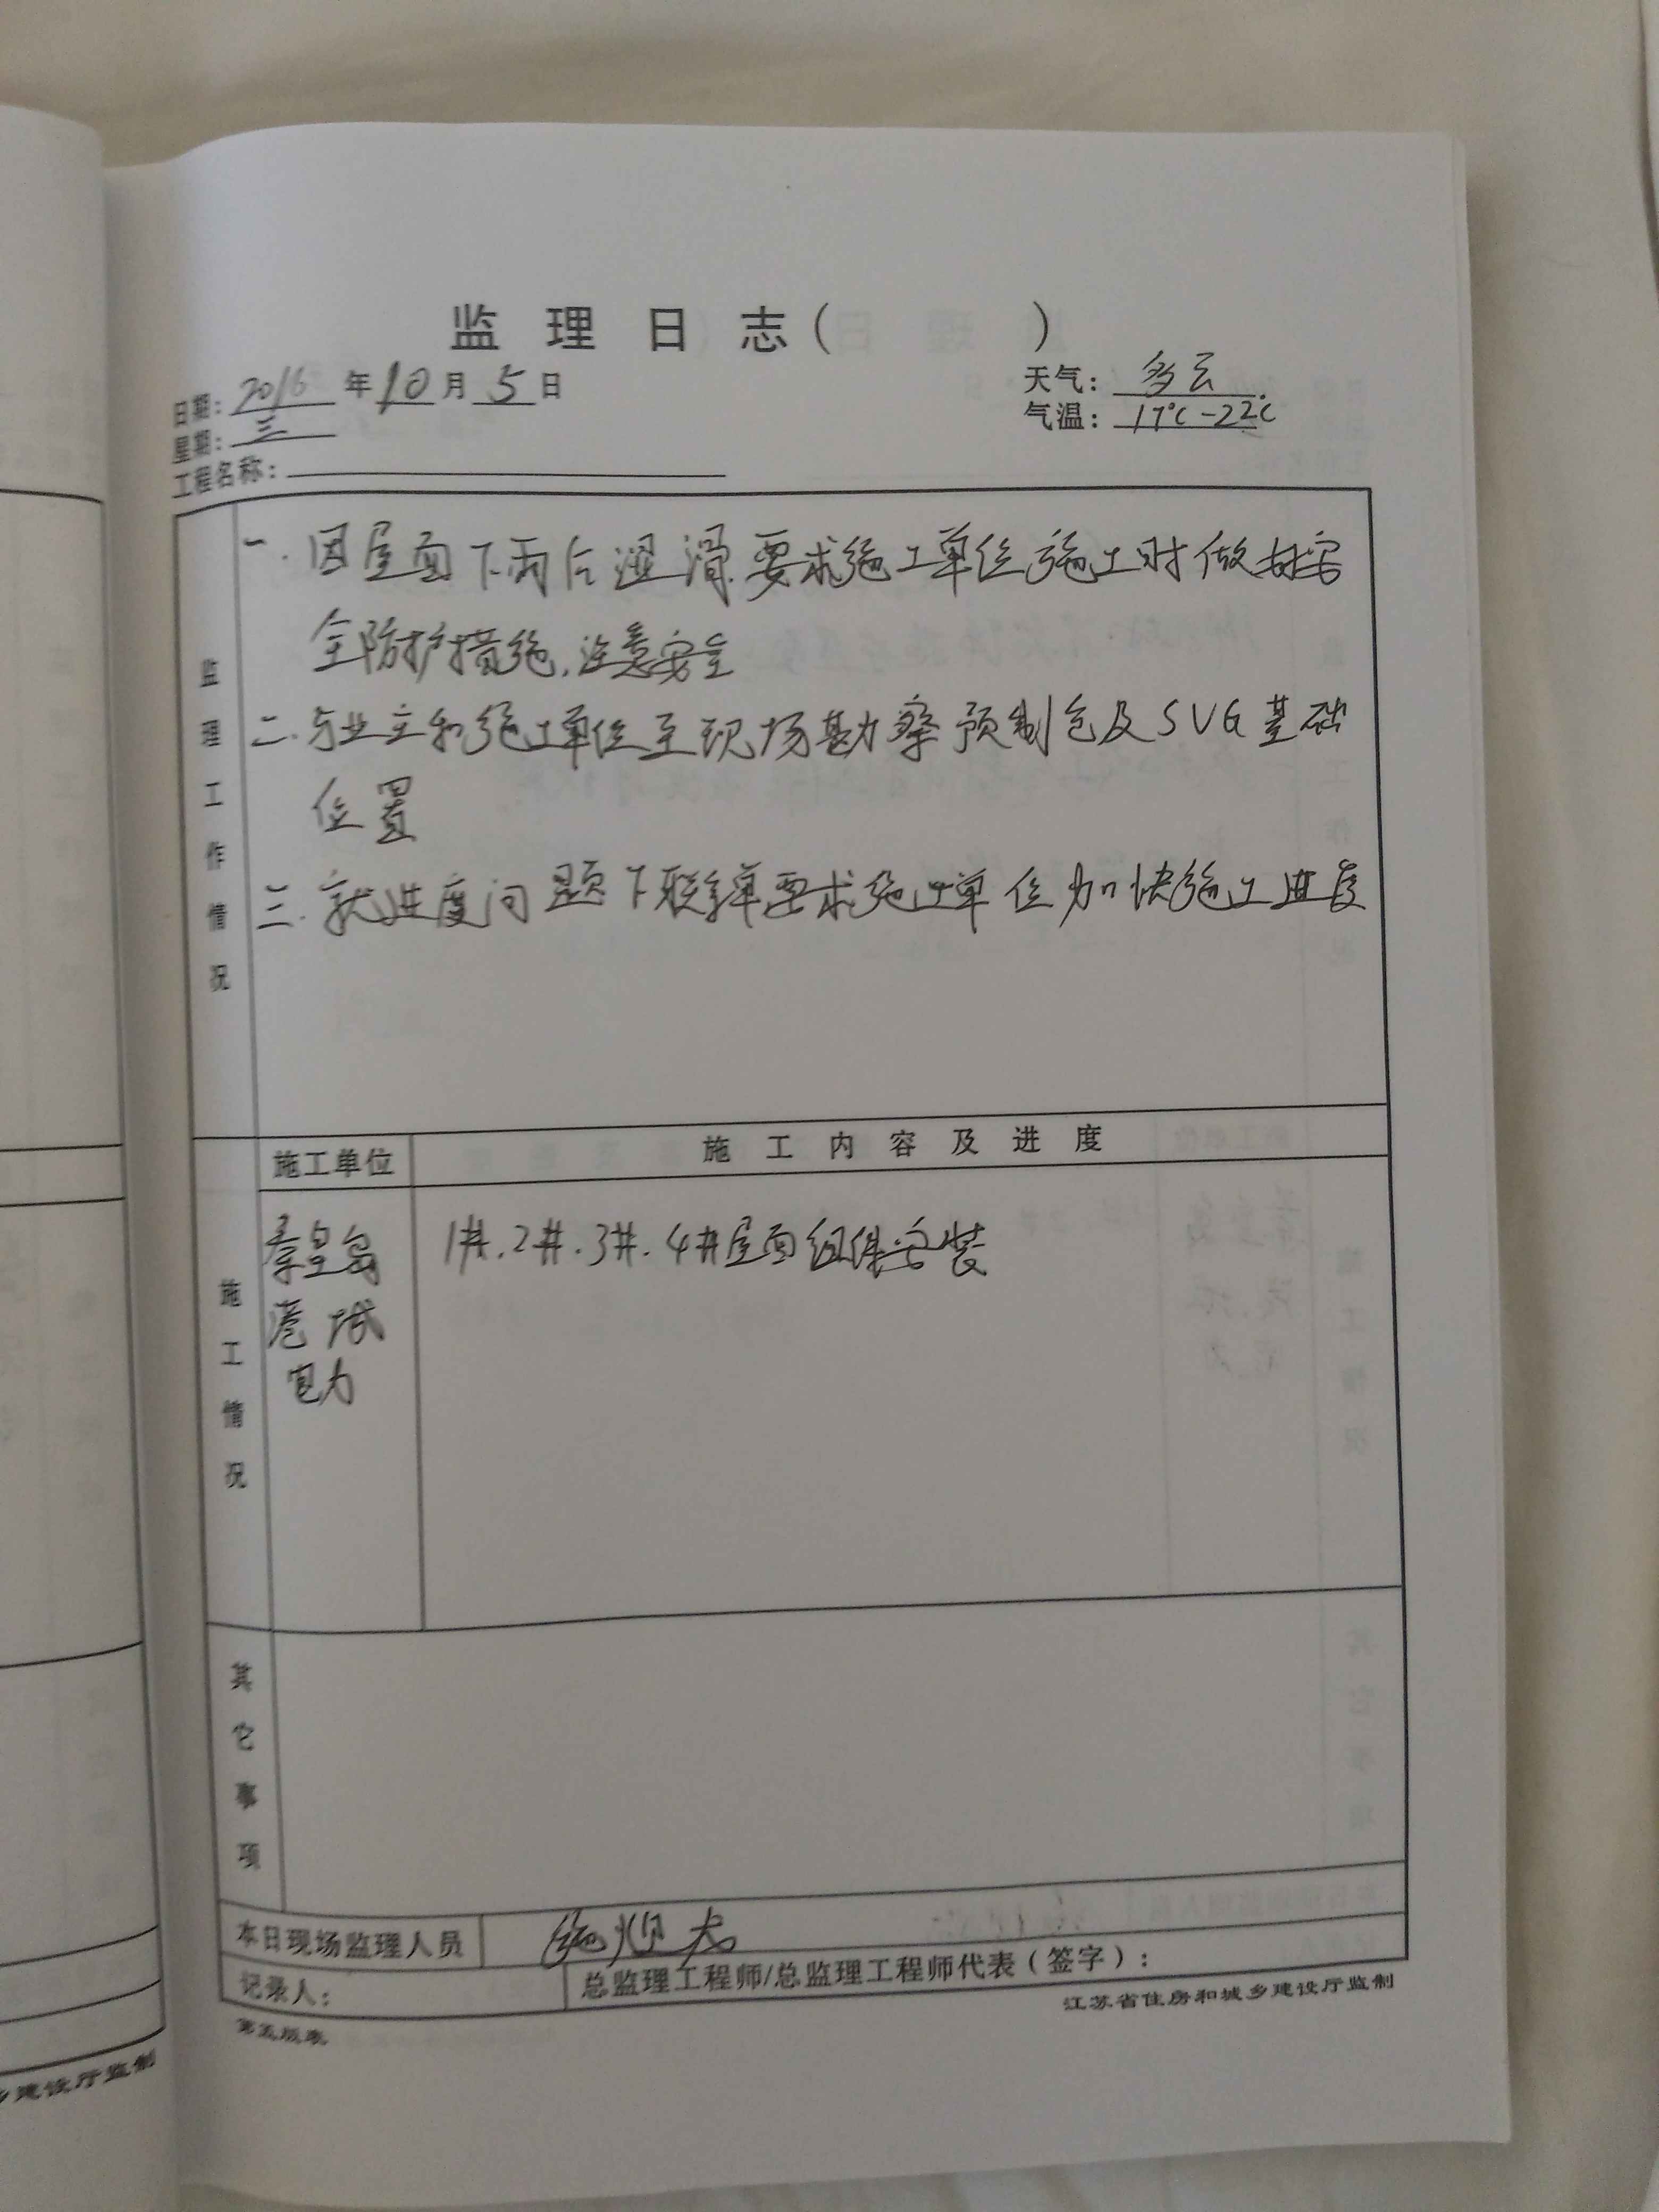 监理日志（ ）
日期：2016年10月5日
天气：多云
星期：三
气温：17℃-22℃
工程名称：
监理工作情况
一.因屋面下雨后湿滑要求施工单位施工时做好安
全防护措施.注意安全
二.与业主和施工单位至现场勘察预制仓及SVG基础
位置
三.就进度问题下联系单要求施工单位加快施工进度
施工单位
施工内容及进度
施工情况
秦皇岛
港城
电力
1#.2#.3#.4#屋面组件安装
其它事项
本日现场监理人员
记录人：
总监理工程师/总监理工程师代表（签字）：
第五版表
江苏省住房和城乡建设厅监制
乡建设厅监制